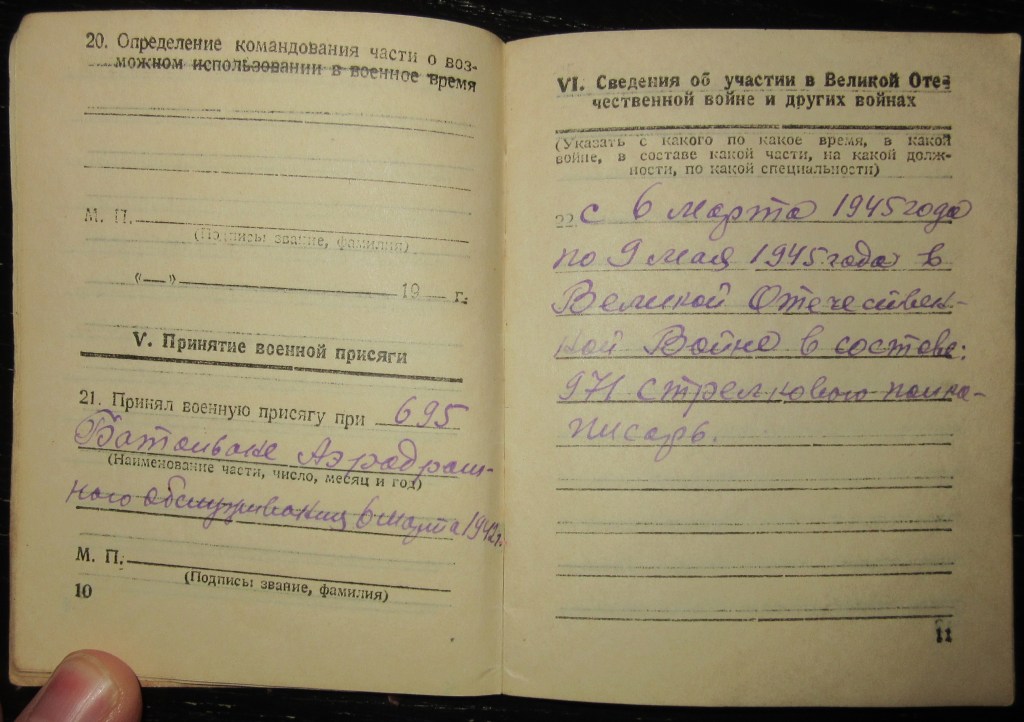 20. Определение командования части о воз-
можном использовании в военное время
М. П.
(Подписы звание, фамилия)
«—» 19 г.
V. Принятие военной присяги
21. Принял военную присягу при 695
Батольоне Аэродром-
(Наименование части, число, месяц и год)
ного обслуживания 6 марта 1942г.
М. П.
(Подписы звание, фамилия)
10
VI. Сведения об участии в Великой Оте-
чественной войне и других войнах
(Указать с какого по какое время, в какой
войне, в составе какой части, на какой долж-
ности, по какой специальности)
22. с 6 марта 1945 года
по 9 мая 1945 года в
Великой Отечествен-
ной Войне в составе:
971 стрелкового полка-
писарь.
11